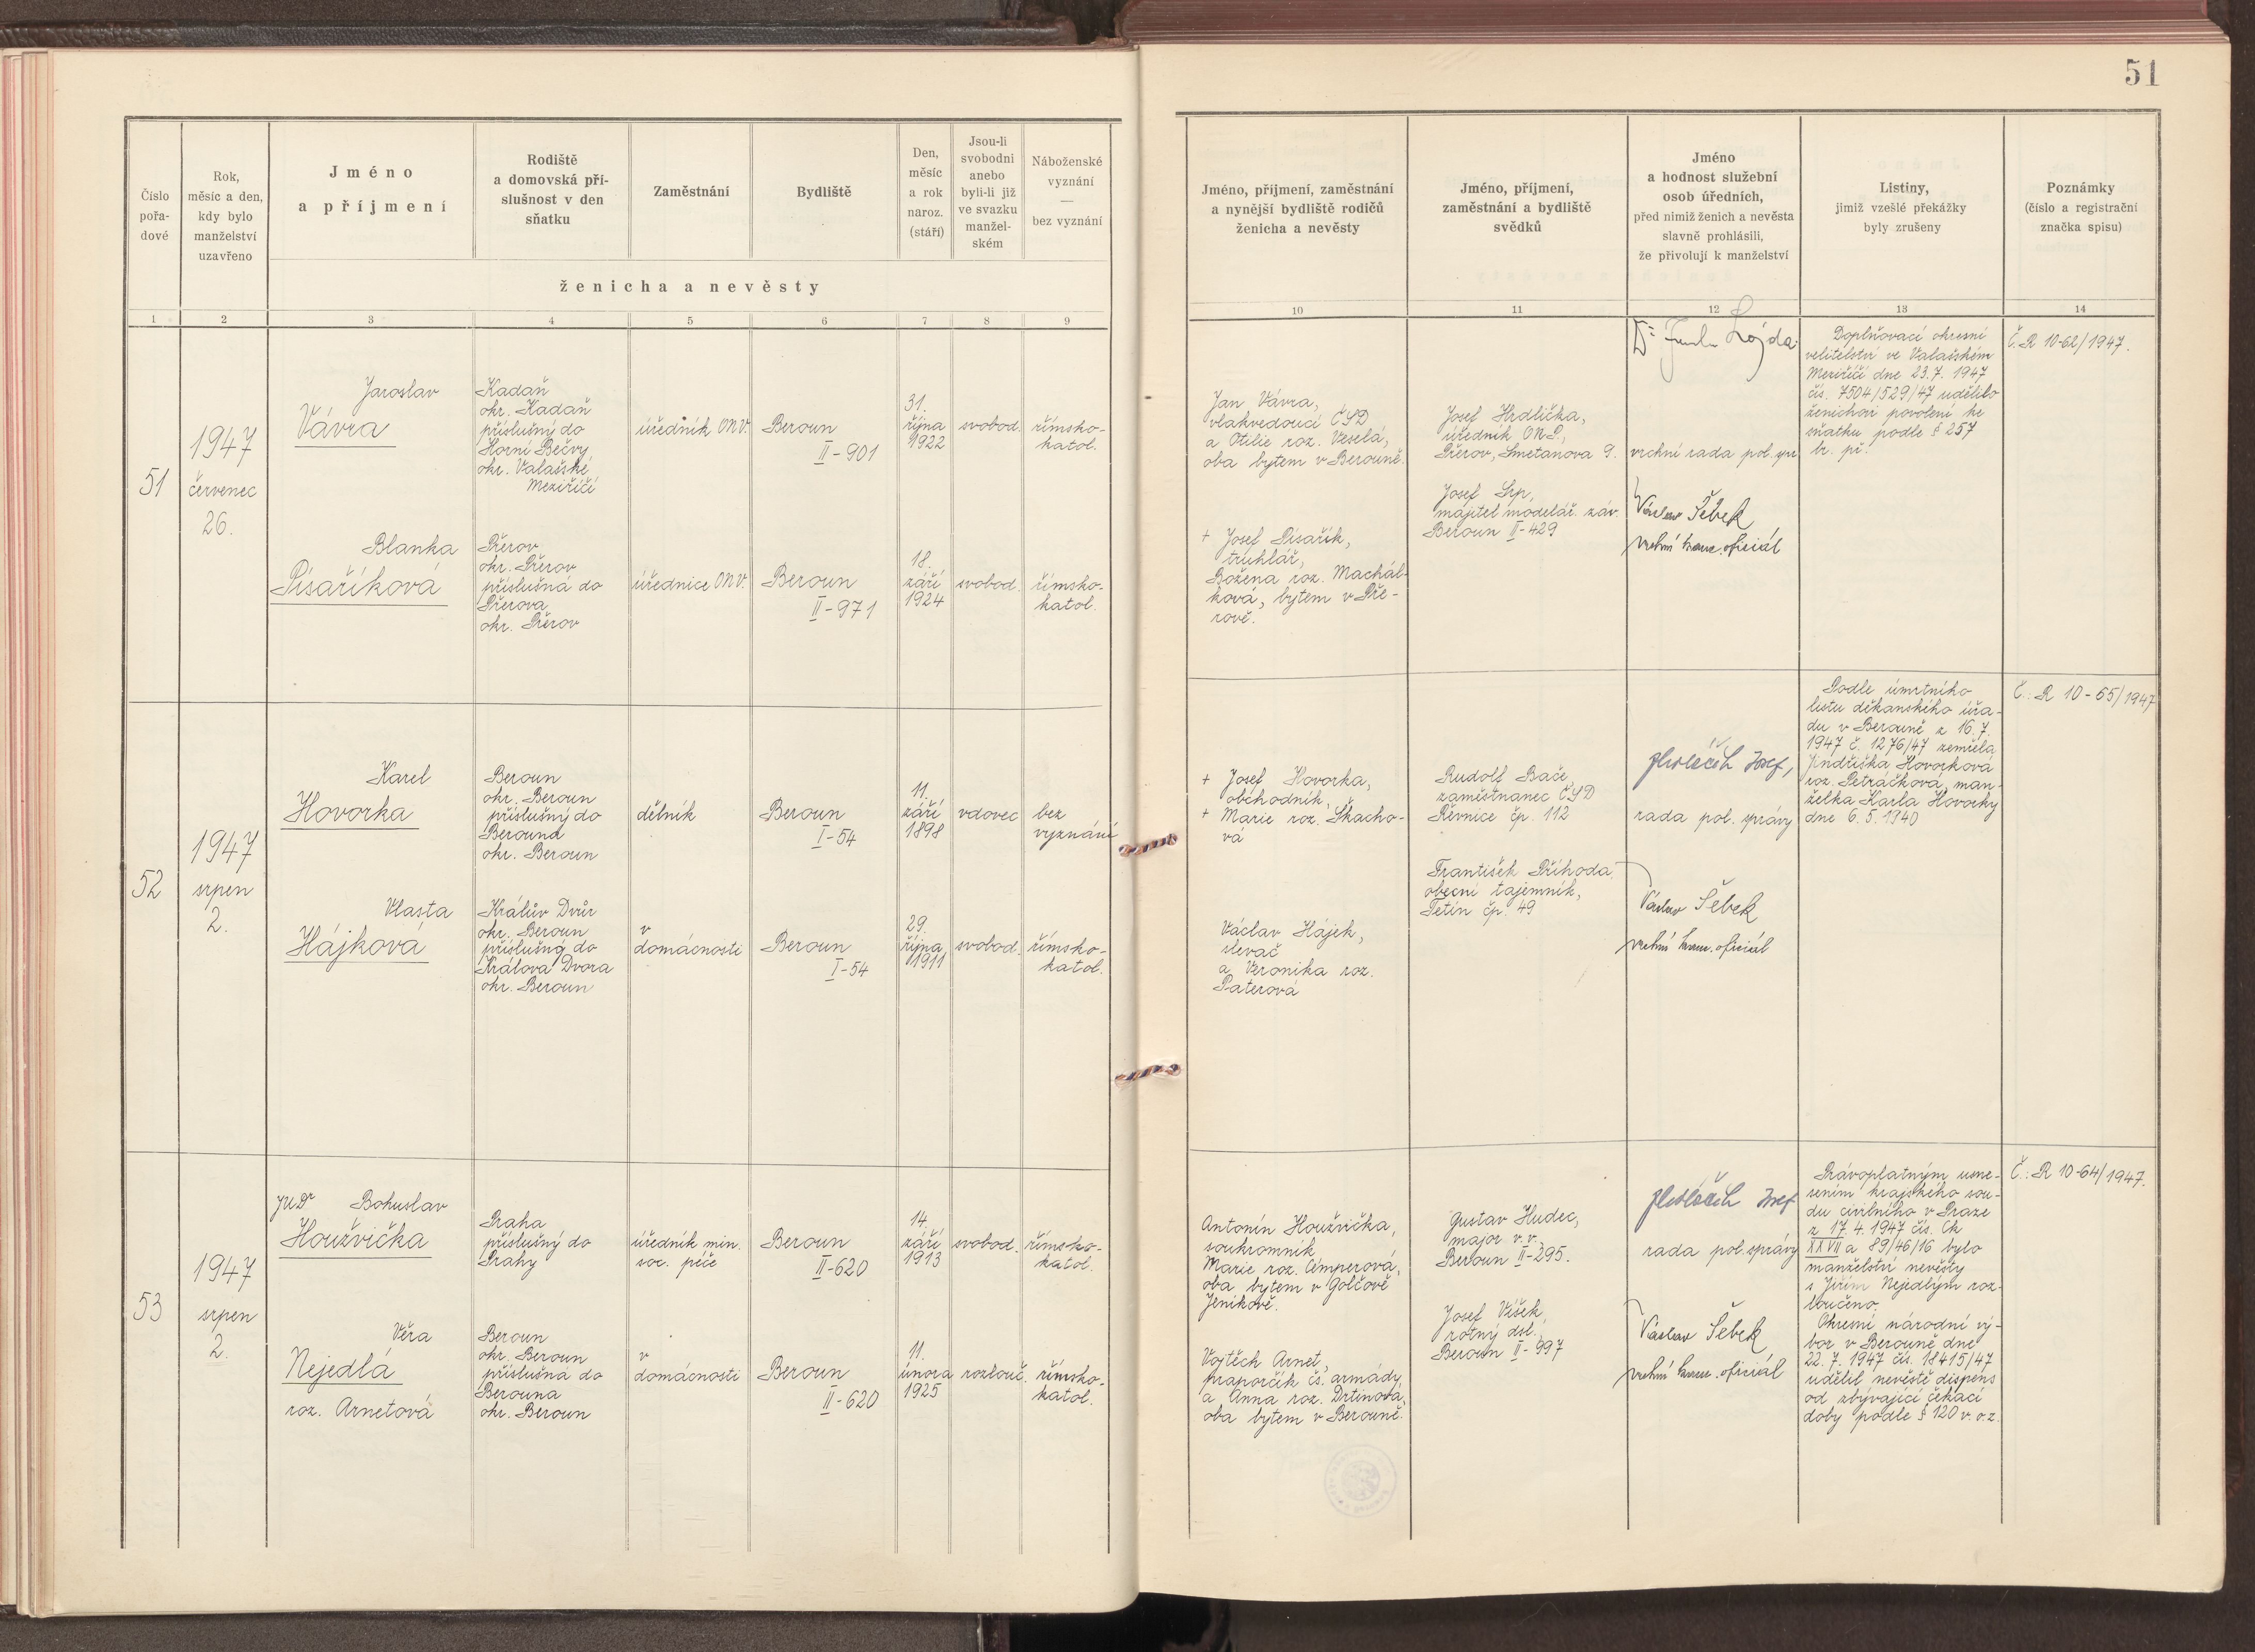 51
Číslo
pořa-
dové
Rok,
měsíc a den,
kdy bylo
manželství
uzavřeno
Jméno
a příjmení
Rodiště
a domovská pří-
slušnost v den
sňatku
Zaměstnání
Bydliště
Den,
měsíc
a rok
naroz.
(stáří)
Jsou-li
svobodni
anebo
byli-li již
ve svazku
manžel-
ském
Náboženské
vyznání
—
bez vyznání
ženicha a nevěsty
Jméno, příjmení, zaměstnání
a nynější bydliště rodičů
ženicha a nevěsty
Jméno, příjmení,
zaměstnání a bydliště
svědků
Jméno
a hodnost služební
osob úředních,
před nimiž ženich a nevěsta
slavně prohlásili,
že přivolují k manželství
Listiny,
jimiž vzešlé překážky
byly zrušeny
Poznámky
(číslo a registrační
značka spisu)
1 2 3 4 5 6 7 8 9 10 11 12 13 14
51
1947
červenec
26.
Jaroslav
Vávra
Kadaň
okr. Kadaň
příslušný do
Horní Bečvy,
okr. Valašské
Meziříčí
úředník ONV.
Beroun
II-901
31.
října
1922
svobod.
římsko-
katol.
Blanka
Písaříková
Přerov
okr. Přerov
příslušná do
Přerova
okr. Přerov
úřednice ONV.
Beroun
II-971
18.
září
1924
svobod.
římsko-
katol.
Jan Vávra,
vlakvedoucí ČSD
a Otilie roz. Veselá,
oba bytem v Berouně.
+ Josef Písařík,
truhlář,
Božena roz. Machál-
ková, bytem v Pře-
rově.
Josef Hrdlička,
úředník ONP.,
Přerov, Smetanova 9.
Josef Srp,
majitel modelář. záv.
Beroun II-429
Dr Lojda
vrchní rada pol. spr
Václav Šebek
vrchní kanc. oficiál
Doplňovací okresní
velitelství ve Valašském
Meziříčí dne 23.7. 1947
čís. 7504/529/47 udělilo
ženichovi povolení ke
sňatku podle § 257
br. př.
Č. R 10-62/1947.
52
1947
srpen
2.
Karel
Hovorka
Beroun
okr. Beroun
příslušný do
Berouna
okr. Beroun
dělník
Beroun
I-54
11.
září
1898
vdovec
bez
vyznání
Vlasta
Hájková
Králův Dvůr
okr. Beroun
příslušná do
Králova Dvora
okr. Beroun
v
domácnosti
Beroun
I-54
29.
října
1911
svobod.
římsko-
katol.
+ Josef Hovorka,
obchodník,
+ Marie roz. Škacho-
vá
Václav Hájek,
slevač
a Veronika roz.
Paterová
Rudolf Bače,
zaměstnanec ČSD
Řevnice čp. 112
František Příhoda,
obecní tajemník,
Tetín čp. 49
Josef,
rada pol. správy
Václav Šebek
vrchní kanc. oficiál
Podle úmrtního
listu děkanského úřa-
du v Berouně z 16.7.
1947 č. 1276/47 zemřela
Jindřiška Hovorková
roz. Petráčková, man-
želka Karla Hovorky
dne 6. 5. 1940
Č.: R 10-65/1947
53
1947
srpen
2.
JUDr Bohuslav
Houžvička
Praha
příslušný do
Prahy
úředník min.
soc. péče
Beroun
II-620
14.
září
1913
svobod.
římsko-
katol.
Věra
Nejedlá
roz. Arnetová
Beroun
okr. Beroun
příslušná do
Berouna
okr. Beroun
v
domácnosti
Beroun
II-620
11.
února
1925
rozlouč.
římsko-
katol.
Antonín Houžvička,
soukromník,
Marie roz. Cemperová,
oba bytem v Golčově
Jeníkově.
Vojtěch Arnet,
praporčík čs. armády,
a Anna roz. Drtinová,
oba bytem v Berouně.
Gustav Hudec,
major v.v.,
Beroun II-295.
Josef Víšek,
rotný dsl.,
Beroun II-997
Josef
rada pol. správy
Václav Šebek
vrchní kanc. oficiál
Právoplatným usne-
sením krajského sou-
du civilního v Praze
z 17.4.1947 čís. Ck
XXVII a 89/46/16 bylo
manželství nevěsty
s Jiřím Nejedlým roz-
loučeno.
Okresní národní vý-
bor v Berouně dne
22.7.1947 čís. 18415/47
udělil nevěstě dispens
od zbývající čekací
doby podle § 120 v.o.z.
Č.: R 10-64/1947.